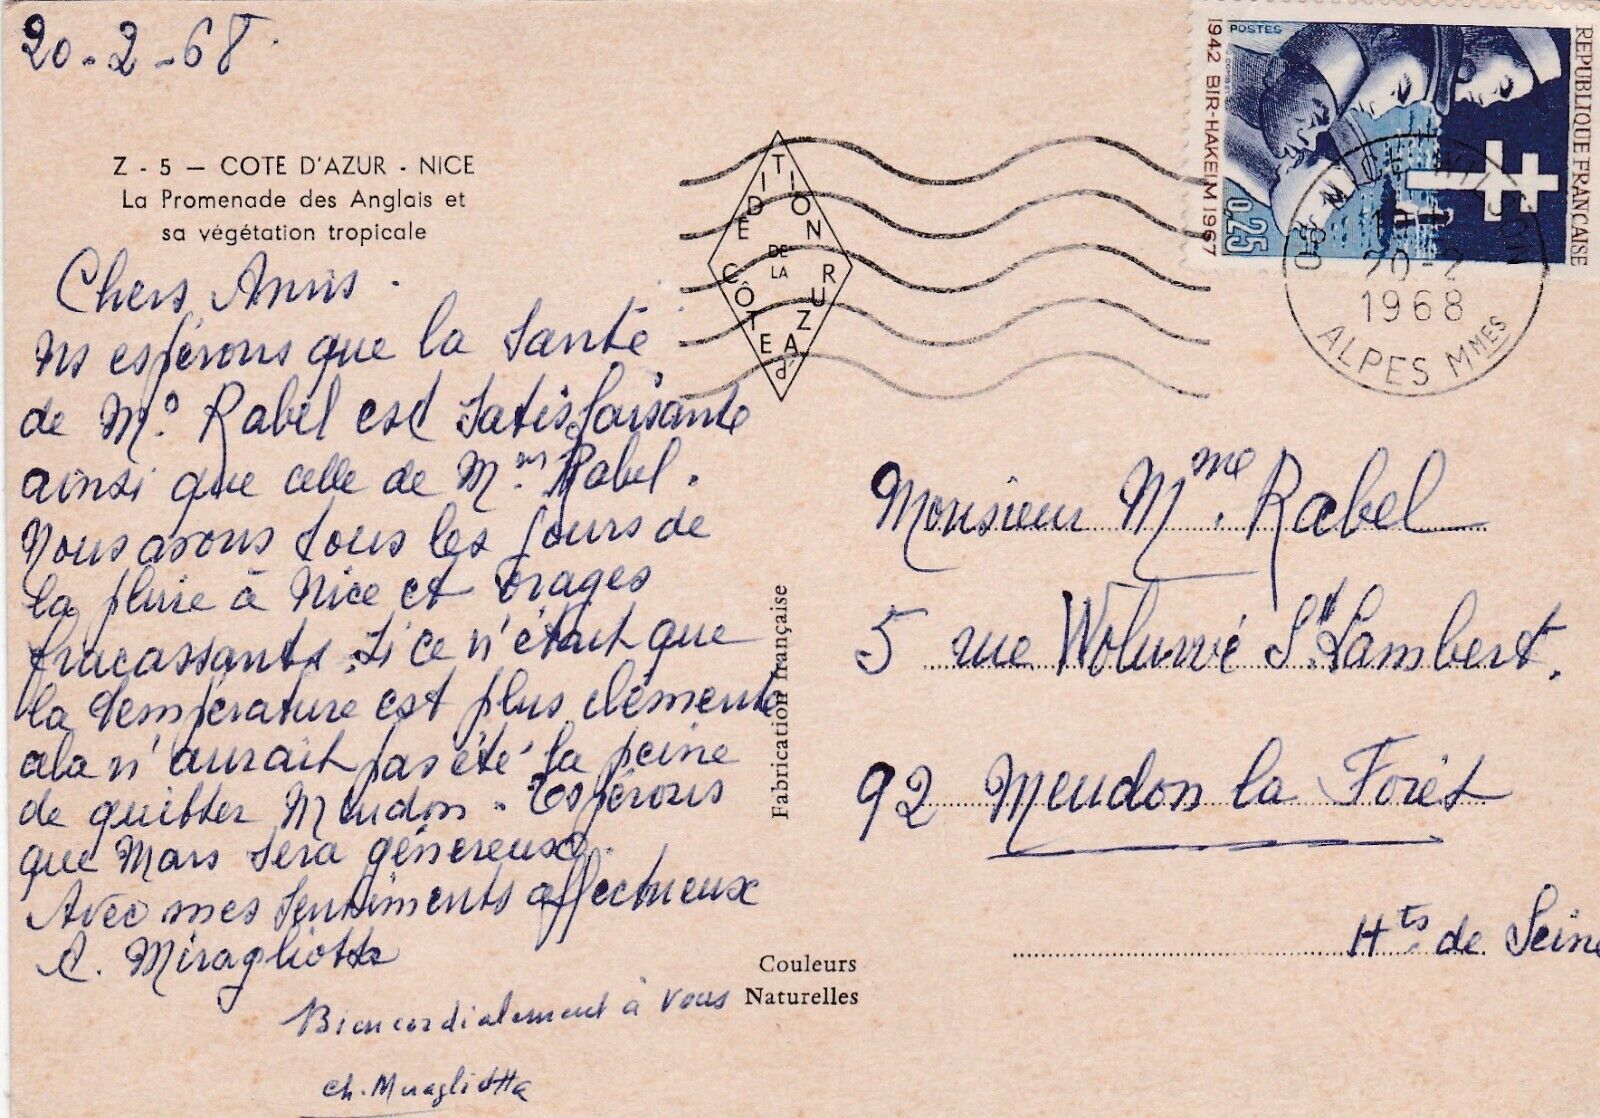 20-2-68.
Z - 5 — COTE D'AZUR - NICE
La Promenade des Anglais et
sa végétation tropicale
Chers Amis.
Ns espérons que la Santé
de Mr. Rabel est Satisfaisante
ainsi que celle de Mme Rabel.
Nous avons tous les jours de
la pluie à Nice et orages
fracassants. Si ce n'était que
la température est plus clémente
cela n'aurait pas été la peine
de quitter Meudon. Espérons
que Mars sera généreuse.
Avec mes Sentiments affectueux
A. Miragliotta
Bien cordialement à vous
Ch. Miragliotta
EDITION DE LA CÔTE d'AZUR
Fabrication française
Couleurs
Naturelles
POSTES
1942 BIR-HAKEIM 1967
0,25
REPUBLIQUE FRANÇAISE
20-2
1968
ALPES MMES
Monsieur Mme. Rabel
5 rue Woluwé St Lambert.
92 Meudon la Forêt
Hts de Seine